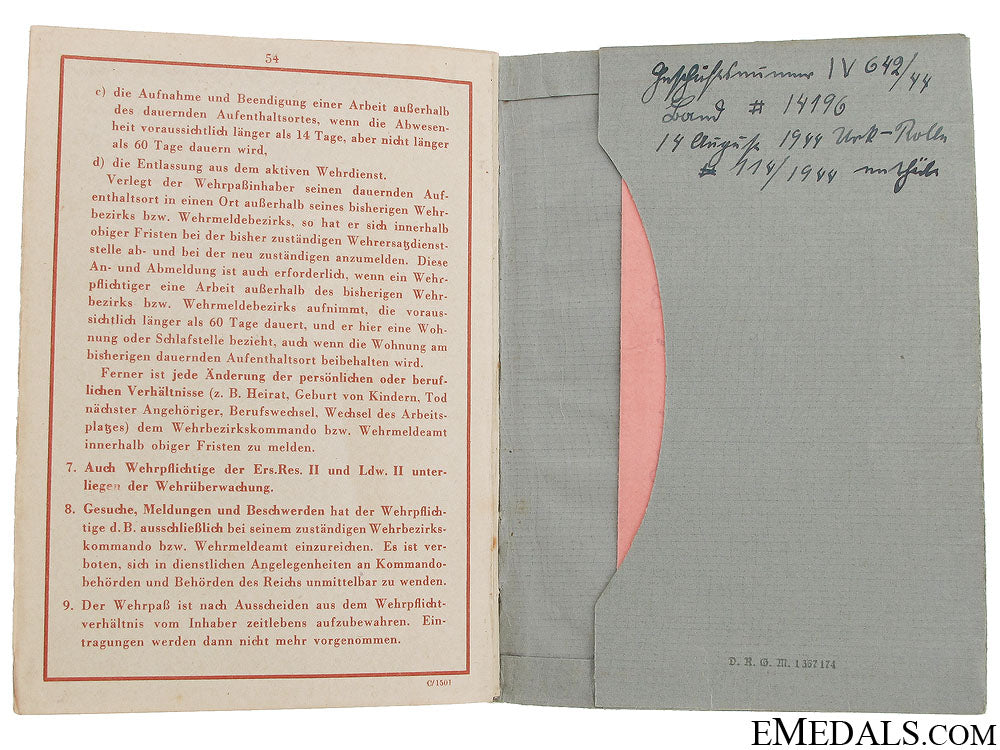 54
c) die Aufnahme und Beendigung einer Arbeit außerhalb
des dauernden Aufenthaltsortes, wenn die Abwesen-
heit voraussichtlich länger als 14 Tage, aber nicht länger
als 60 Tage dauern wird,
d) die Entlassung aus dem aktiven Wehrdienst.
Verlegt der Wehrpaßinhaber seinen dauernden Auf-
enthaltsort in einen Ort außerhalb seines bisherigen Wehr-
bezirks bzw. Wehrmeldebezirks, so hat er sich innerhalb
obiger Fristen bei der bisher zuständigen Wehrersatzdienst-
stelle ab- und bei der neu zuständigen anzumelden. Diese
An- und Abmeldung ist auch erforderlich, wenn ein Wehr-
pflichtiger eine Arbeit außerhalb des bisherigen Wehr-
bezirks bzw. Wehrmeldebezirks aufnimmt, die voraus-
sichtlich länger als 60 Tage dauert, und er hier eine Woh-
nung oder Schlafstelle bezieht, auch wenn die Wohnung am
bisherigen dauernden Aufenthaltsort beibehalten wird.
Ferner ist jede Änderung der persönlichen oder beruf-
lichen Verhältnisse (z. B. Heirat, Geburt von Kindern, Tod
nächster Angehöriger, Berufswechsel, Wechsel des Arbeits-
platzes) dem Wehrbezirkskommando bzw. Wehrmeldeamt
innerhalb obiger Fristen zu melden.
7. Auch Wehrpflichtige der Ers.Res. II und Ldw. II unter-
liegen der Wehrüberwachung.
8. Gesuche, Meldungen und Beschwerden hat der Wehrpflich-
tige d. B. ausschließlich bei seinem zuständigen Wehrbezirks-
kommando bzw. Wehrmeldeamt einzureichen. Es ist ver-
boten, sich in dienstlichen Angelegenheiten an Kommando-
behörden und Behörden des Reichs unmittelbar zu wenden.
9. Der Wehrpaß ist nach Ausscheiden aus dem Wehrpflicht-
verhältnis vom Inhaber zeitlebens aufzubewahren. Ein-
tragungen werden dann nicht mehr vorgenommen.
C/1501
Geschäftsnummer IV 642/44
Band # 14196
14 August 1944 Urk-Rolle
# 114/1944
D. R. G. M. 1 367 174
EMEDALS.COM